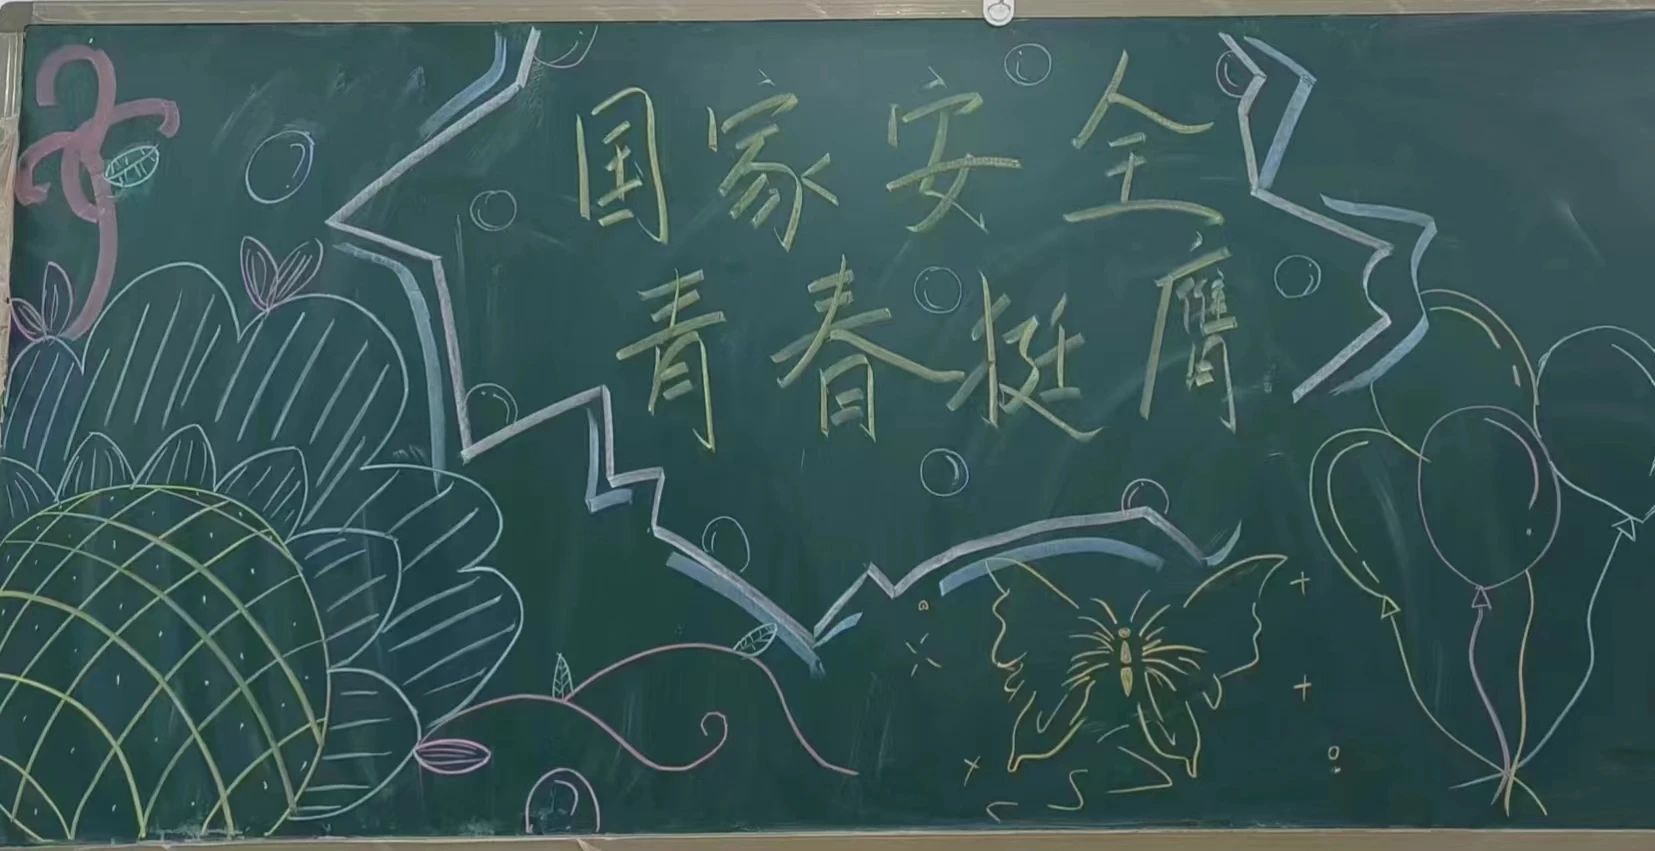 国家安全
青春挺膺